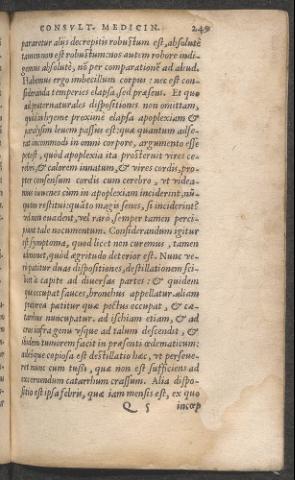 CONSVLT. MEDICIN. 249
pararetur alijs decrepitis robustum est, absolutè
tamen non est robustum: nos autem robore indi-
gemus absolutè, nō per comparationē ad aliud.
Habemus ergo imbecillum corpus: nec est con-
sideranda temperies elapsa, sed præsens. Et quo
ad præternaturales dispositiones non omittam,
quòd hyeme proximè elapsa apoplexiam &
passus est: quæ quantum adfe-
rat incommodi in omni corpore, argumento esse
potest, quòd apoplexia ita prosternit vires ce-
rebri, & calorem innatum, & vires cordis, pro-
pter consensum cordis cum cerebro, vt videa-
mus iuuenes cùm in apoplexiam inciderint, nū-
quam restitui: quātò magis senes, si inciderint?
euadent, vel rarò, semper tamen perci-
piunt tale nocumentum. Considerandum igitur
est symptoma, quod licet non curemus, tamen
admonet, quòd ægritudo deterior est. Nunc ve-
rò patitur duas dispositiones, destillationem sci-
licet à capite ad diuersas partes: & quidem
quæ occupat fauces, bronchus appellatur: aliam
præterea patitur quæ pectus occupat, & ca-
tarrhus nuncupatur. ad ischiam etiam, & ad
crus infra genu vsque ad talum descendit, &
ibidem tumorem facit in præsenti œdematicum:
adeóque copiosa est destillatio hæc, vt perseue-
ret nunc cum tussi, quæ non est sufficiens ad
excernendum catarrhum crassum. Alia dispo-
sitio est ipsa febris, quæ iam mensis est, ex quo
Q 5 incœp